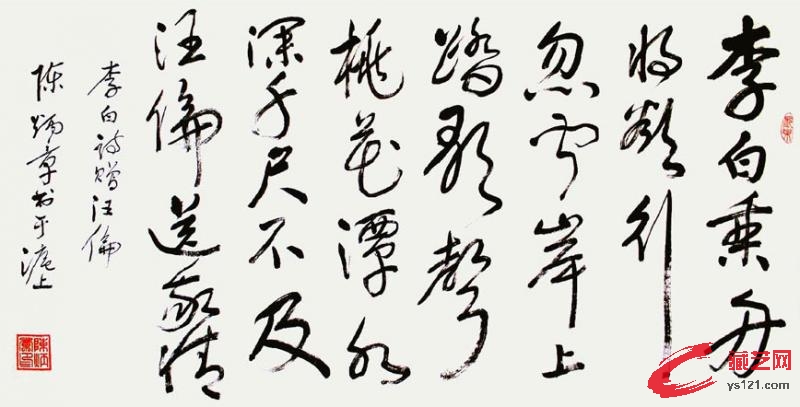 李白乘舟
将欲行
忽闻岸上
踏歌声
桃花潭水
深千尺不及
汪伦送我情
李白诗赠汪伦
陈炳章书于沪上
藏艺网
ys121.com